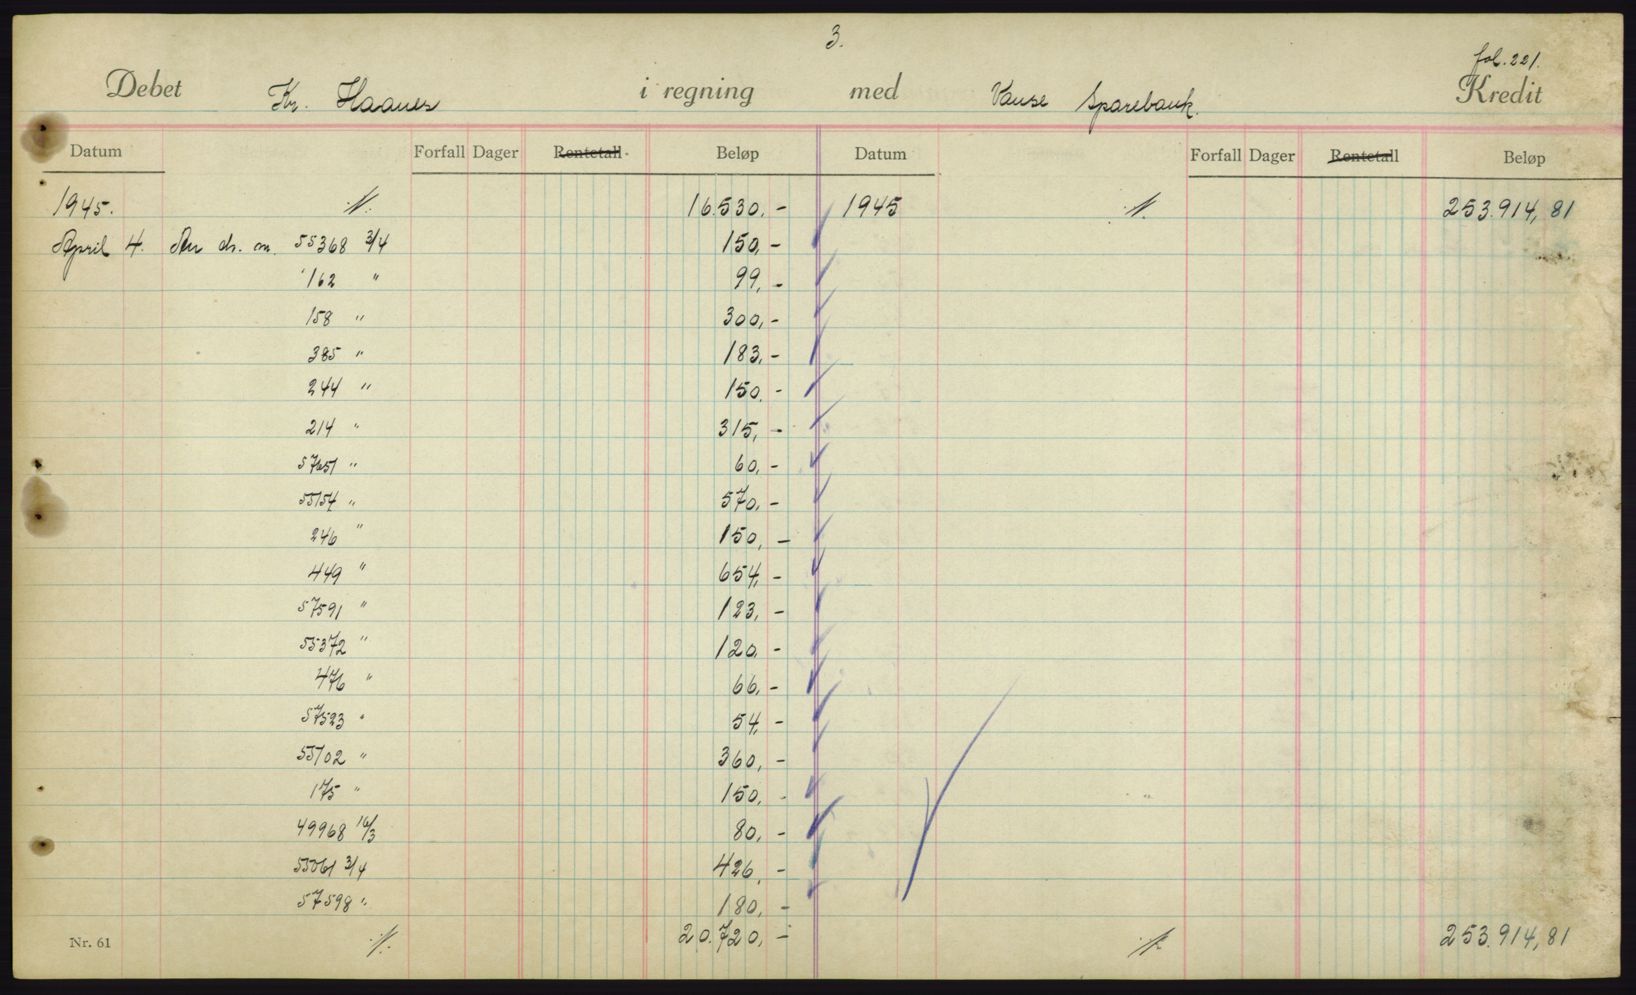 3.
fol. 221.
Debet Kr. Haanes i regning med Vanse Sparebank. Kredit
Datum Forfall Dager Rentetall Beløp Datum Forfall Dager Rentetall Beløp
1945. 16.530,- 1945 253.914,81
April 4. 55368 3/4 150,-
162 " 99,-
158 " 300,-
385 " 183,-
244 " 150.-
214 " 315,-
57651 " 60,-
55154 " 570,-
246 " 150,-
449 " 654,-
57591 " 123,-
55372 " 120,-
476 " 66,-
57523 " 54,-
55102 " 360,-
175 " 150,-
49968 16/3 80,-
55061 3/4 426,-
57598 " 180,-
Nr. 61 20.720,- 253.914,81